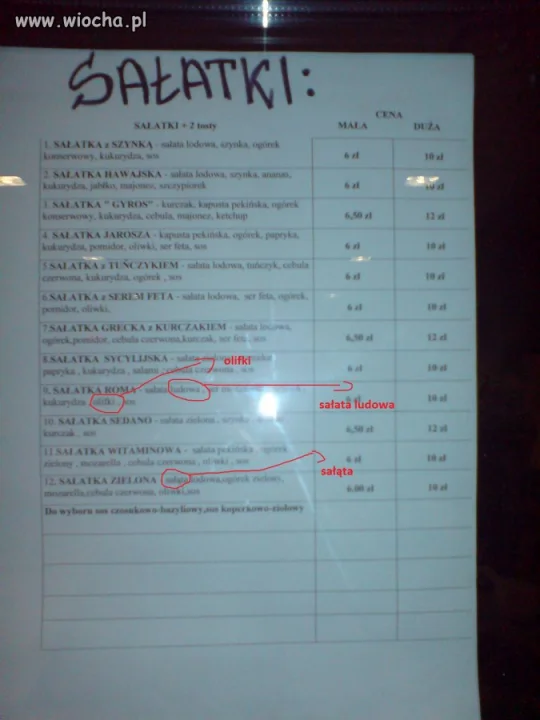 www.wiocha.pl
SAŁATKI:
CENA
SAŁATKI + 2 tosty MAŁA DUŻA
1. SAŁATKA z SZYNKĄ - sałata lodowa, szynka, ogórek
konserwowy, kukurydza, sos 6 zł 10 zł
2. SAŁATKA HAWAJSKA - sałata lodowa, szynka, ananas,
kukurydza, jabłko, majonez, szczypiorek 6 zł 10 zł
3. SAŁATKA " GYROS" - kurczak, kapusta pekińska, ogórek
konserwowy, kukurydza, cebula, majonez, ketchup 6,50 zł 12 zł
4. SAŁATKA JAROSZA - kapusta pekińska, ogórek, papryka,
kukurydza, pomidor, oliwki, ser feta, sos 6 zł 10 zł
5.SAŁATKA z TUŃCZYKIEM - sałata lodowa, tuńczyk, cebula
czerwona, kukurydza, ogórek , sos 6 zł 10 zł
6.SAŁATKA z SEREM FETA - sałata lodowa, ser feta, ogórek,
pomidor, oliwki, 6 zł 10 zł
7.SAŁATKA GRECKA z KURCZAKIEM - sałata lodowa,
ogórek,pomidor,cebula czerwona,kurczak, ser feta , sos 6,50 zł 12 zł
8.SAŁATKA SYCYLIJSKA - sałata
papryka , kukurydza , salami , cebula czerwona , sos 6 zł 10 zł
olifki
9. SAŁATKA ROMA - sałata ludowa ,
kukurydza , olifki , sos 6 zł 10 zł
sałata ludowa
10. SAŁATKA SEDANO - sałata zielona , szynka ,
kurczak , sos 6,50 zł 12 zł
11.SAŁATKA WITAMINOWA - sałata pekińska , ogórek
zielony , mozarella , cebula czerwona , oliwki , sos 6 zł 10 zł
sałąta
12. SAŁATKA ZIELONA - sałąta lodowa,ogórek zielony,
mozarella,cebula czerwona, oliwki,sos 6.00 zł 10 zł
Do wyboru sos czosnkowo-bazyliowy,sos koperkowo-ziołowy